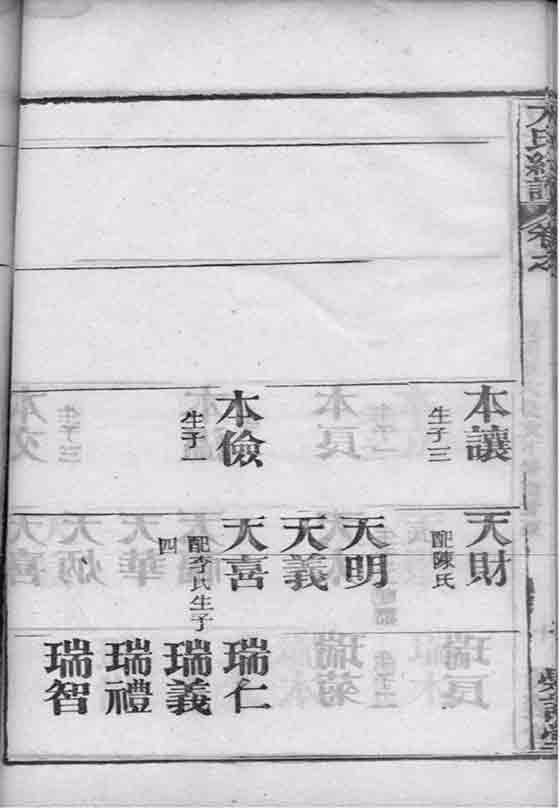 本讓
生子三
本儉
生子一
天財
配陳氏
天明
天義
天喜
配李氏生子
四
瑞仁
瑞義
瑞禮
瑞智